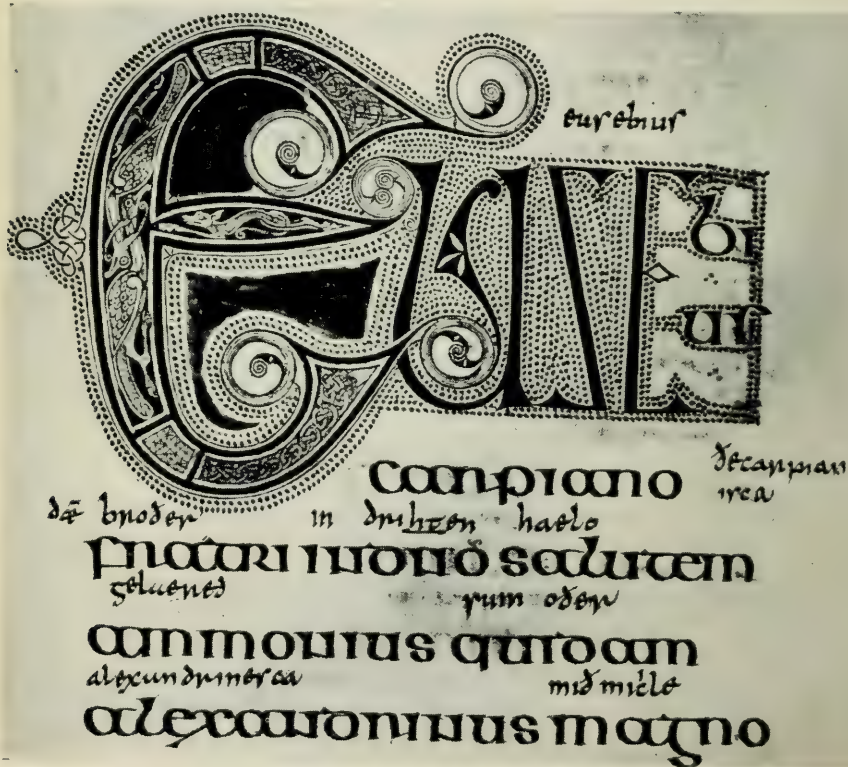 eusebius
EUSE
bi
us
carpiano ðecarpian
isca
ðæ broðer in drihten haelo
fratri indnō salutem
gelaered sum oðer
ammonius quidam
alexandrinesca mið micle
alexandrinus magno